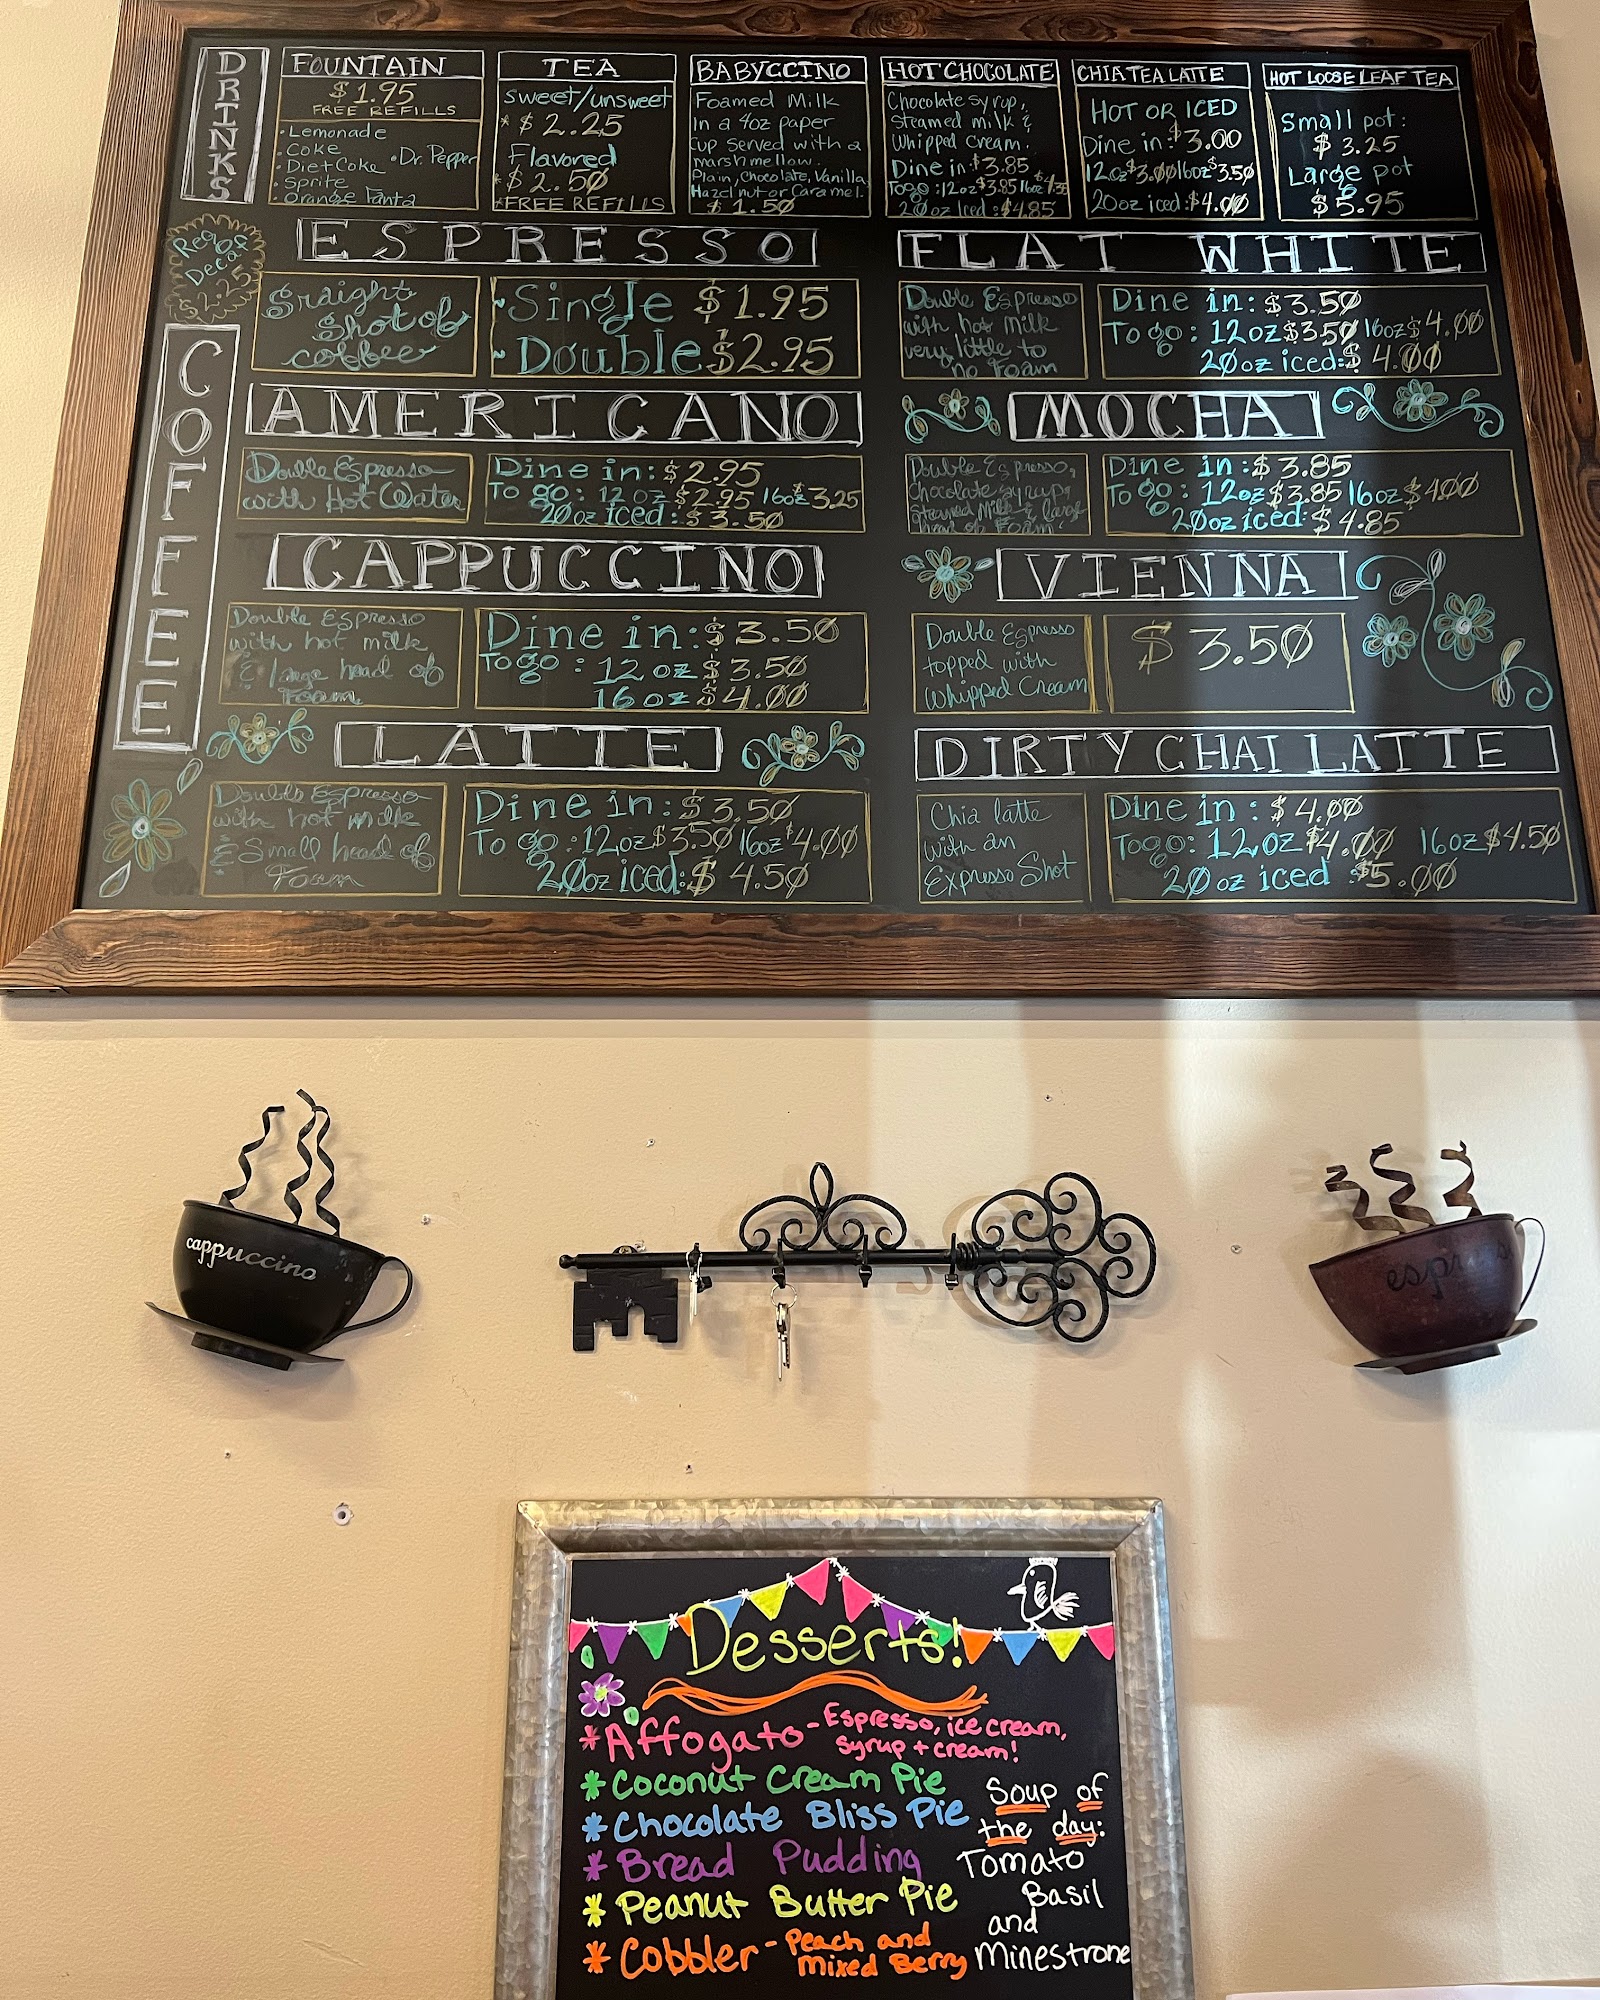 DRINKS
FOUNTAIN
$1.95
FREE REFILLS
• Lemonade
• Coke
• Diet Coke • Dr. Pepper
• Sprite
• Orange Fanta
TEA
Sweet/unsweet
* $2.25
Flavored
* $2.50
*FREE REFILLS
BABYCCINO
Foamed Milk
In a 4oz paper
Cup Served with a
marshmellow.
Plain, Chocolate, Vanilla
Hazelnut or Caramel.
$1.50
HOT CHOCOLATE
Chocolate syrup,
Steamed milk &
Whipped Cream.
Dine in: $3.85
To go: 12oz $3.85 16oz
20oz Iced: $4.85
CHIA TEA LATTE
HOT OR ICED
Dine in: $3.00
12oz $3.00 16oz $3.50
20oz iced: $4.00
HOT LOOSE LEAF TEA
Small pot:
$3.25
Large pot
$5.95
Reg or
Decaf
$2.25
COFFEE
ESPRESSO
Straight
shot of
coffee
~Single $1.95
~Double $2.95
AMERICANO
Double Espresso
with Hot Water
Dine in: $2.95
To go: 12oz $2.95 16oz $3.25
20oz iced: $3.50
CAPPUCCINO
Double Espresso
with hot milk
& large head of
Foam
Dine in: $3.50
To go: 12oz $3.50
16oz $4.00
LATTE
Double Espresso
with hot milk
& Small head of
Foam
Dine in: $3.50
To go: 12oz $3.50 16oz $4.00
20oz iced: $4.50
FLAT WHITE
Double Espresso
with hot milk
very little to
no Foam
Dine in: $3.50
To go: 12oz $3.50 16oz $4.00
20oz iced: $4.00
MOCHA
Double Espresso,
Chocolate Syrup,
Steamed Milk & large
head of Foam.
Dine in: $3.85
To go: 12oz $3.85 16oz $4.00
20oz iced: $4.85
VIENNA
Double Espresso
topped with
Whipped Cream
$3.50
DIRTY CHAI LATTE
Chia latte
with an
Expresso Shot
Dine in: $4.00
To go: 12oz $4.00 16oz $4.50
20oz iced $5.00
cappuccino
Desserts!
*Affogato - Espresso, ice cream,
syrup + cream!
*Coconut Cream Pie
*Chocolate Bliss Pie
*Bread Pudding
*Peanut Butter Pie
*Cobbler - Peach and
Mixed Berry
Soup of
the day:
Tomato
Basil
and
Minestrone